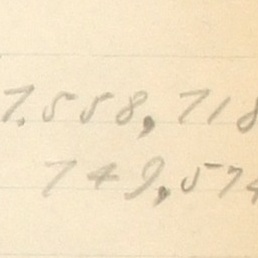 7.558,718
749,574